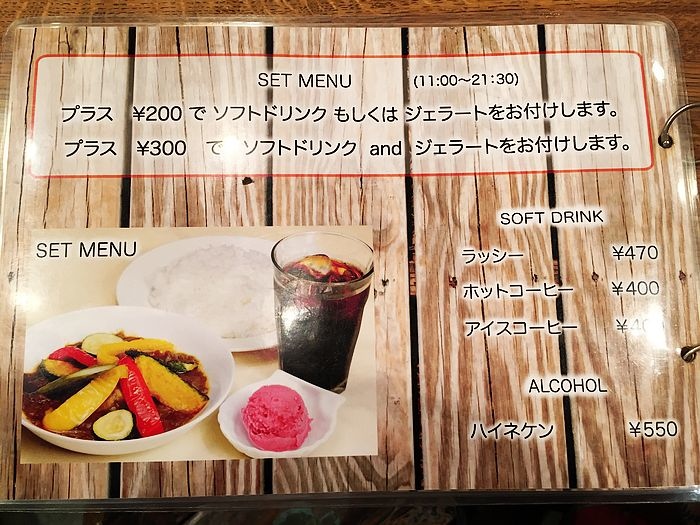 SET MENU (11:00～21:30)
プラス ¥200 で ソフトドリンク もしくは ジェラートをお付けします。
プラス ¥300 で ソフトドリンク and ジェラートをお付けします。
SET MENU
SOFT DRINK
ラッシー ¥470
ホットコーヒー ¥400
アイスコーヒー
ALCOHOL
ハイネケン ¥550